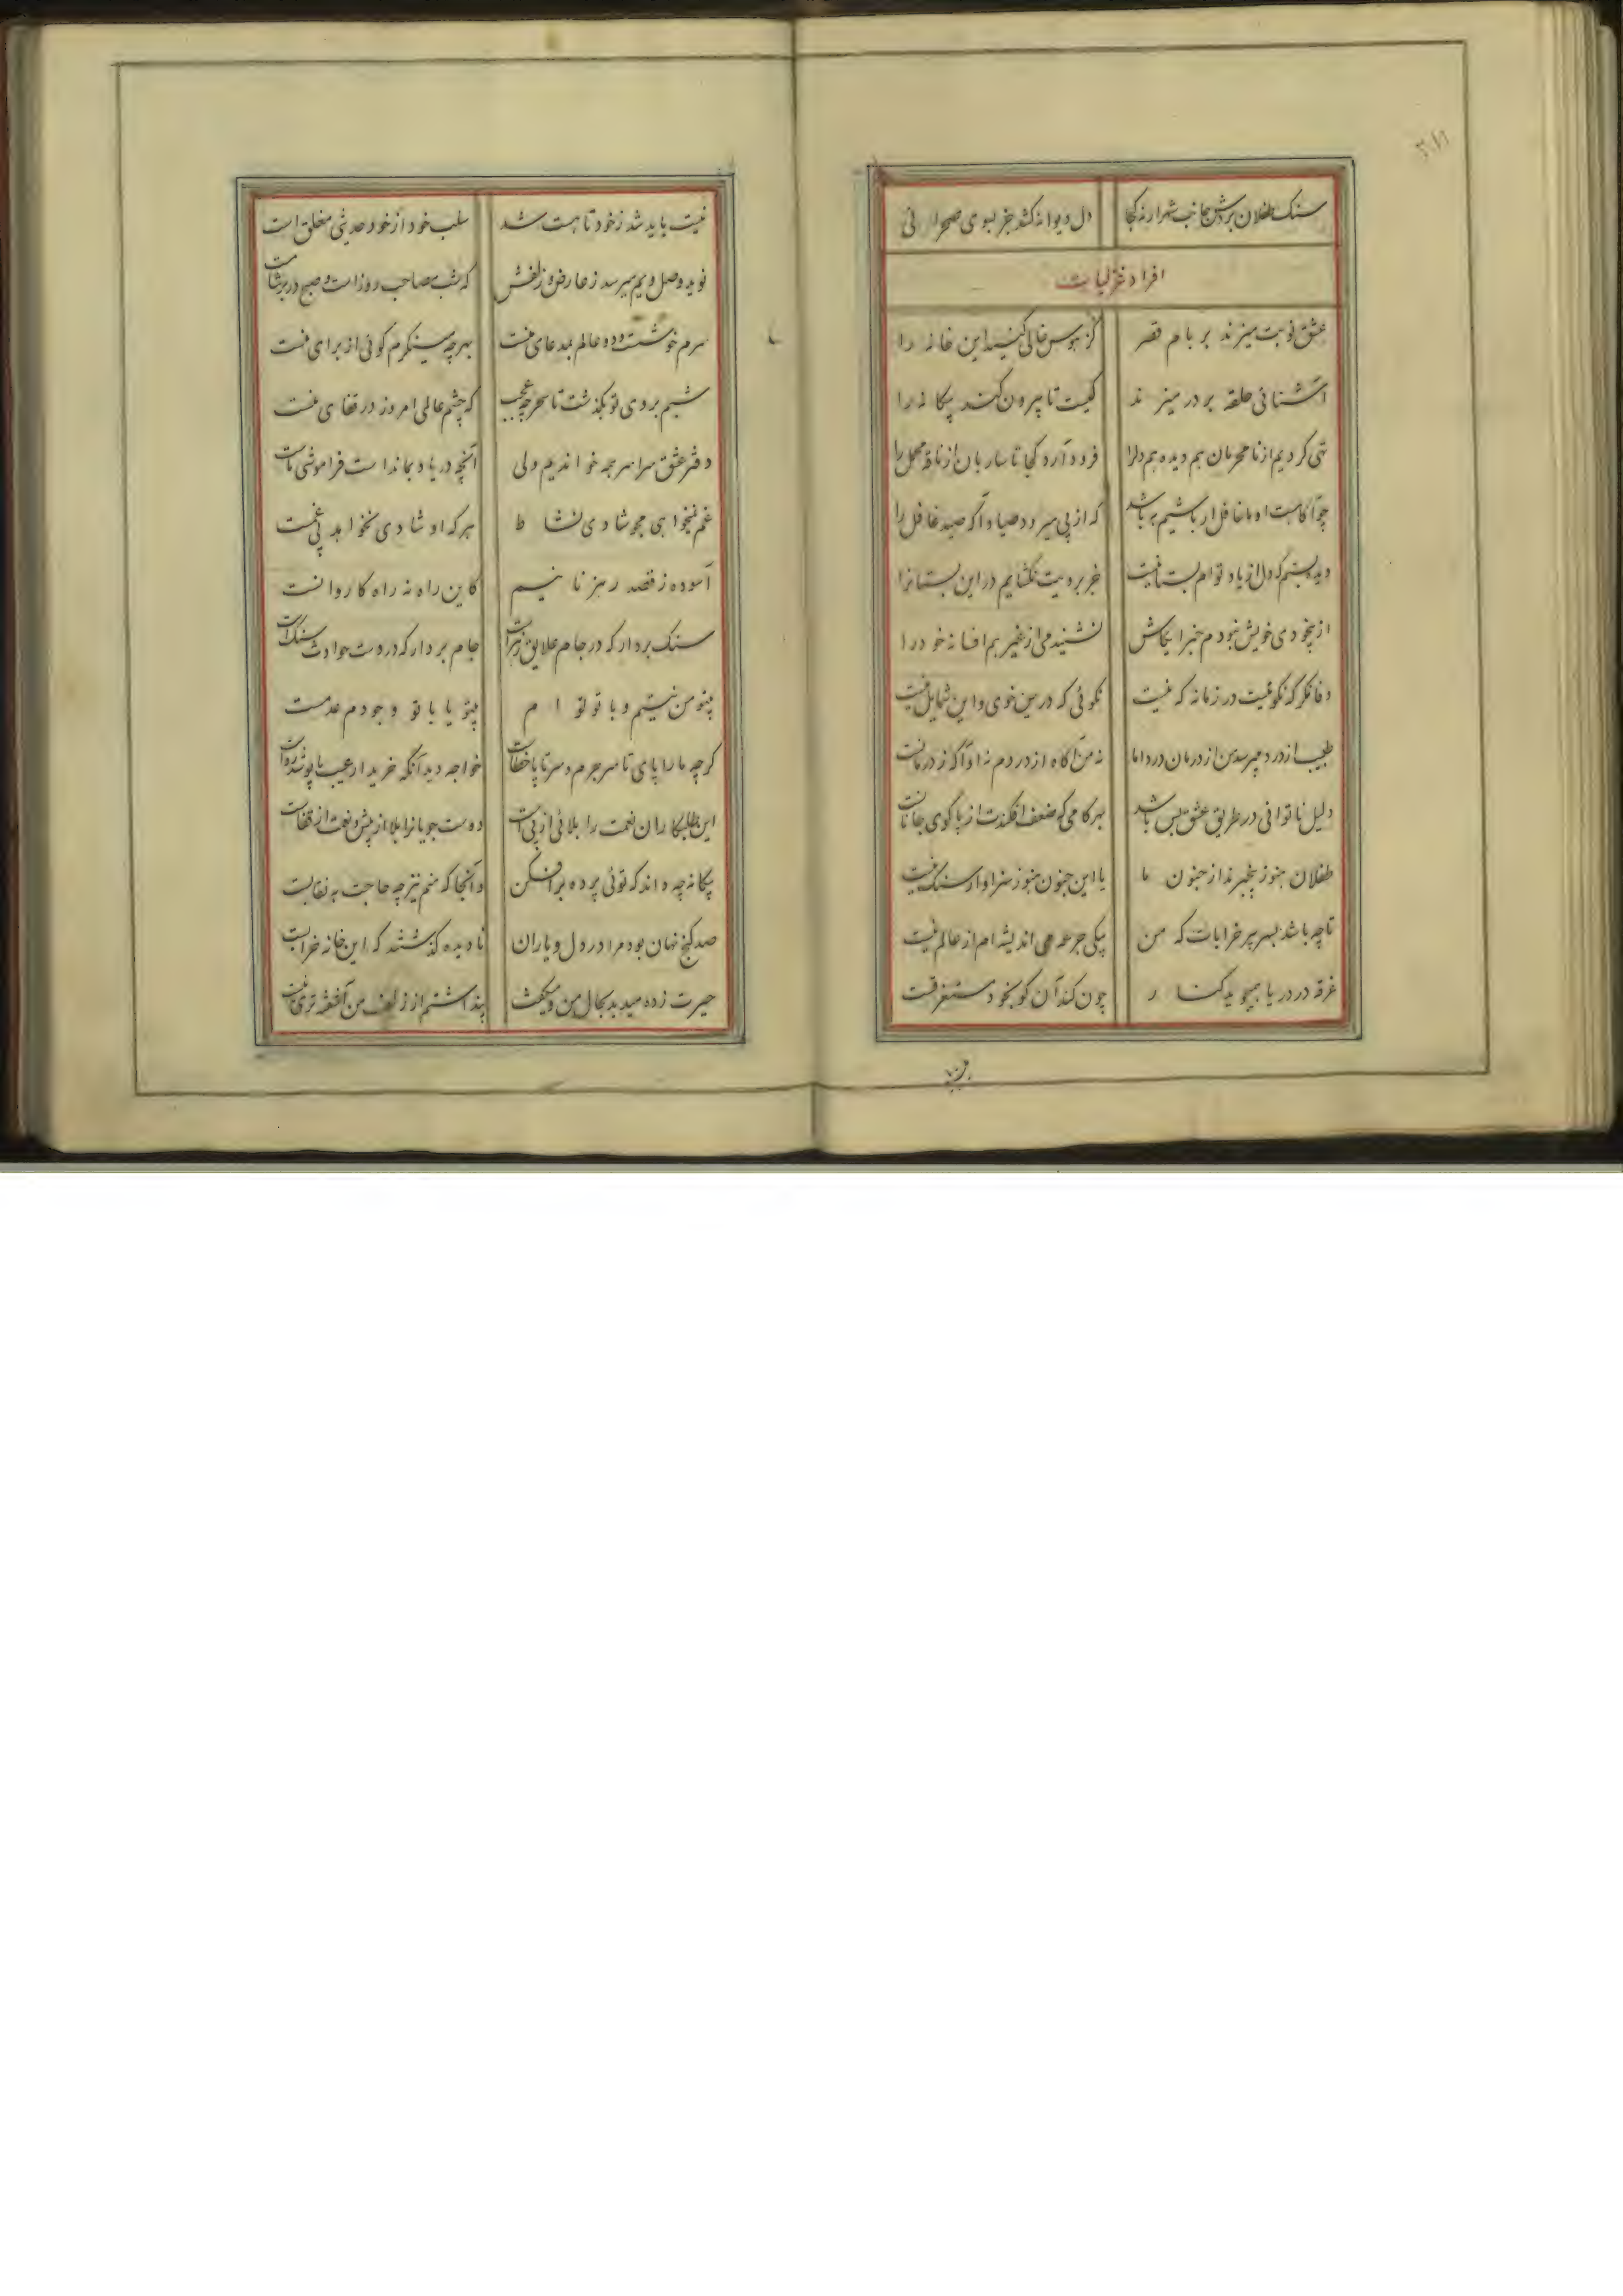 سنک طفلان برش جانب شهر ارنه کجا
دل دیوانه کشد جز بسوی صحرا نی
افراد غزلیات
عشق نوبت میزند بر بام قصر
کز هوس خالی کنید این خانه را
آشنائی حلقه بر در میزند
کیست تا بیرون کند بیکانه را
تهی کردیم از نامحرمان هم دیده هم دلرا
فرود آرد کجا تا ساربان از ناقه محمل را
چو آکاهست او ما غافل ار باشیم به باشد
که از پی میرود صیاد آکه صید غافل را
دیده بستم که دل از یاد توام بستانیست
جز برویت نکشایم در این بستانرا
از بیخودی خویش نبودم خبر ایکاش
نشنیدمی از غیر هم افسانه خود را
وفا نکر که نکو نیست در زمانه که نیست
نکوئی که درین خوی و این شمایل نیست
طبیب از درد میپرسد من از درمان درد اما
نه من آکاه از دردم نه او آکه ز درمانست
دلیل ناتوانی در طریق عشق بس باشد
بهر کامی که ضعف افکندت از پا کوی جانانست
طفلان هنوز بیخبرند از جنون ما
یا این جنون هنوز سزاوار سنک نیست
تا چه باشد بسر پیر خرابات که من
بیکی جرعه می اندیشه ام از عالم نیست
غرقه در دریا بمیجوید کنار
چون کند آن کو بخود مستغرقست
نیست باید شد ز خود تا هست شد
سلب خود از خود حدیثی مغلق است
نوید وصل و بیم میرسد ز عارض و زلفش
که شب مصاحب روز است و صبح در بر شامست
سرم خوشست و دو عالم بمدعای منست
بهر چه مینکرم کوئی از برای منست
شبم بروی تو بکذشت تا سحر چه عجب
که چشم عالمی امروز در قفای منست
دفتر عشق سراسر همه خواندیم ولی
آنچه در یاد بماندا ست فراموشی ماست
غم نمیخواهی مجو شادی نشاط
هر که او شادی نخواهد بی غمست
آسوده ز قصد رهزنانیم
کاین راه نه راه کاروانست
سنک بردار که در جام علایق زهر است
جام بردار که در دست حوادث سنک است
بیتو من نیستم و با تو توام
بیتو یا با تو وجودم عدمست
کرچه ما را پای تا سر جرم و سر تا پا خطاست
خواجه دید آنکه خریدار عیب ما پوشد رواست
این طلبکاران نعمت را بلائی از پی است
دوست جویانرا بلا از پیش و نعمت از قفاست
بیکانه چه داند که توئی پرده برافکن
و آنجا که منم نیز چه حاجت به نقابت
صد کنج نهان بود مرا در دل و یاران
نادیده کذشتند که این خانه خرابست
حیرت زده میدید بحال من و میکفت
پنداشتم از زلف من آشفته تری نیست